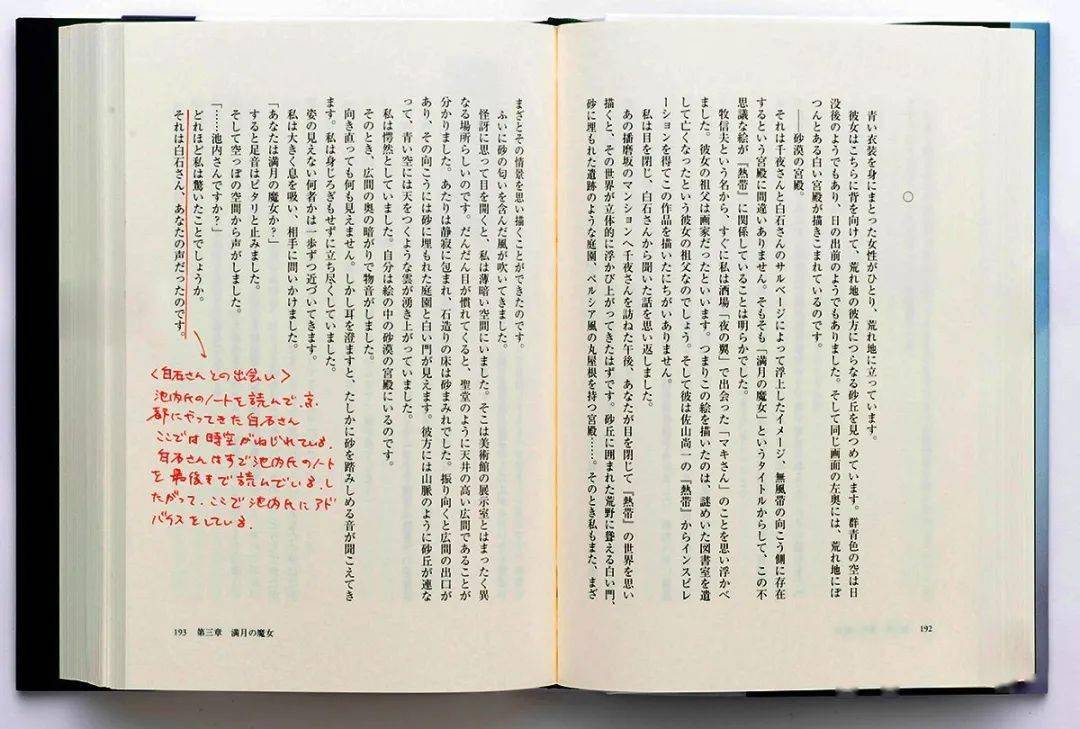 ○
青い衣装を身にまとった女性がひとり、荒れ地に立っています。
彼女はこちらに背を向けて、荒れ地の彼方につらなる砂丘を見つめています。群青色の空は日
没後のようでもあり、日の出前のようでもありました。そして同じ画面の左奥には、荒れ地にぽ
つんとある白い宮殿が描きこまれているのです。
――砂漠の宮殿。
それは千夜さんと白石さんのサルベージによって浮上したイメージ、無風帯の向こう側に存在
するという宮殿に間違いありません。そもそも「満月の魔女」というタイトルからして、この不
思議な絵が『熱帯』に関係していることは明らかでした。
牧信夫という名から、すぐに私は酒場「夜の翼」で出会った「マキさん」のことを思い浮かべ
ました。彼女の祖父は画家だったといいます。つまりこの絵を描いたのは、謎めいた図書室を遺
して亡くなったという彼女の祖父なのでしょう。そして彼は佐山尚一の『熱帯』からインスピレ
ーションを得てこの作品を描いたにちがいありません。
私は目を閉じ、白石さんから聞いた話を思い返しました。
あの播磨坂のマンションへ千夜さんを訪ねた午後、あなたが目を閉じて『熱帯』の世界を思い
描くと、その世界が立体的に浮かび上がってきたはずです。砂丘に囲まれた荒野に聳える白い門、
砂に埋もれた遺跡のような庭園、ペルシア風の丸屋根を持つ宮殿……。そのとき私もまた、まざ
192
まざとその情景を思い描くことができたのです。
ふいに砂の匂いを含んだ風が吹いてきました。
怪訝に思って目を開くと、私は薄暗い空間にいました。そこは美術館の展示室とはまったく異
なる場所らしいのです。だんだん目が慣れてくると、聖堂のように天井の高い広間であることが
分かりました。あたりは静寂に包まれ、石造りの床は砂まみれでした。振り向くと広間の出口が
あり、その向こうには砂に埋もれた庭園と白い門が見えます。彼方には山脈のように砂丘が連な
って、青い空には天をつくような雲が湧き上がっていました。
私は愕然としていました。自分は絵の中の砂漠の宮殿にいるのです。
そのとき、広間の奥の暗がりで物音がしました。
向き直っても何も見えません。しかし耳を澄ますと、たしかに砂を踏みしめる音が聞こえてき
ます。私は身じろぎもせずに立ち尽くしていました。
姿の見えない何者かは一歩ずつ近づいてきます。
私は大きく息を吸い、相手に問いかけました。
「あなたは満月の魔女か?」
すると足音はピタリと止みました。
そして空っぽの空間から声がしました。
「……池内さんですか?」
どれほど私は驚いたことでしょうか。
それは白石さん、あなたの声だったのです。
〈白石さんとの出会い〉
池内氏のノートを読んで、京
都にやってきた白石さん
ここでは時空がねじれている。
白石さんはすでに池内氏のノート
を最後まで読んでいる。し
たがって、ここで池内氏にアド
バイスをしている。
193 第三章 満月の魔女